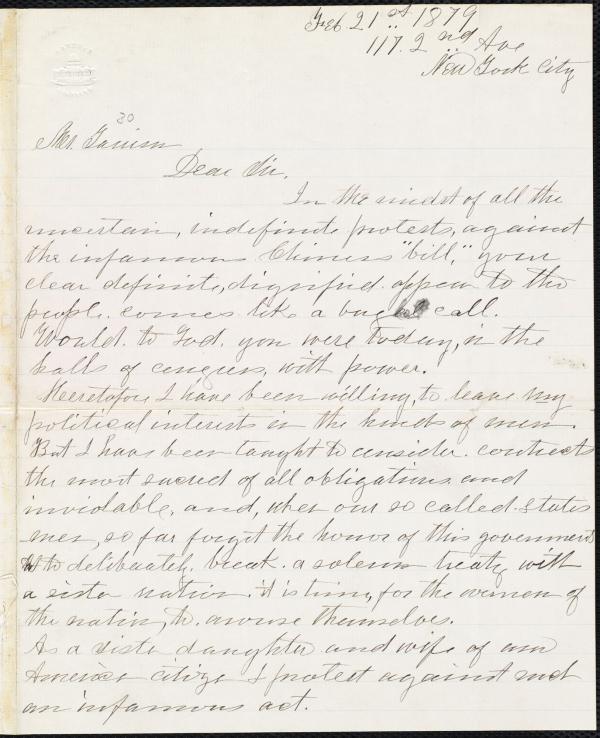 Feb. 21st 1879
117. 2nd Ave
New York City
30
Mr. Garrison
Dear Sir.
In the midst of all the
uncertain, indefinite protests, against
the infamous Chinese "bill," your
clear definite, dignified. appeal to the
people. comes like a bugle call.
Would. to God. you were today, in the
halls of congress, with power.
Heeretofore I have been willing, to leave my
political interests in the hands of men.
But I have been taught to consider. contracts
the most sacred of all obligations and
inviolable, and, when our so called. states
men, so far forget the honor of this government
to deliberately. break. a solemn treaty with
a sister nation. it is time, for the women of
the nation, to. arouse themselves.
As a sister daughter and wife of an
American citizen I protest against such
an infamous act.